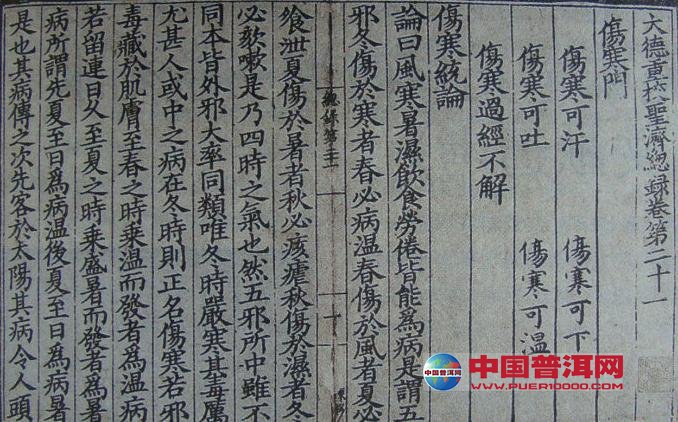 大德重校聖濟總録卷第二十一
傷寒門
傷寒可汗
傷寒可下
傷寒可吐
傷寒可溫
傷寒過經不解
傷寒統論
論曰風寒暑濕飲食勞倦皆能爲病是謂五
邪冬傷於寒者春必病温春傷於風者夏必
飱泄夏傷於暑者秋必痎瘧秋傷於濕者冬
必欬嗽是乃四時之氣也然五邪所中雖不
同本皆外邪大率同類唯冬時嚴寒其毒厲
尤甚人或中之病在冬時則正名傷寒若邪
毒藏於肌膚至春之時乘温而發者爲温病
若留連日久至夏之時乘盛暑而發者爲暑
病所謂先夏至日爲病温後夏至日爲病暑
是也其病傳之次先客於太陽其病令人頭
中国普洱网
中国普洱网
WWW.PUER10000.COM